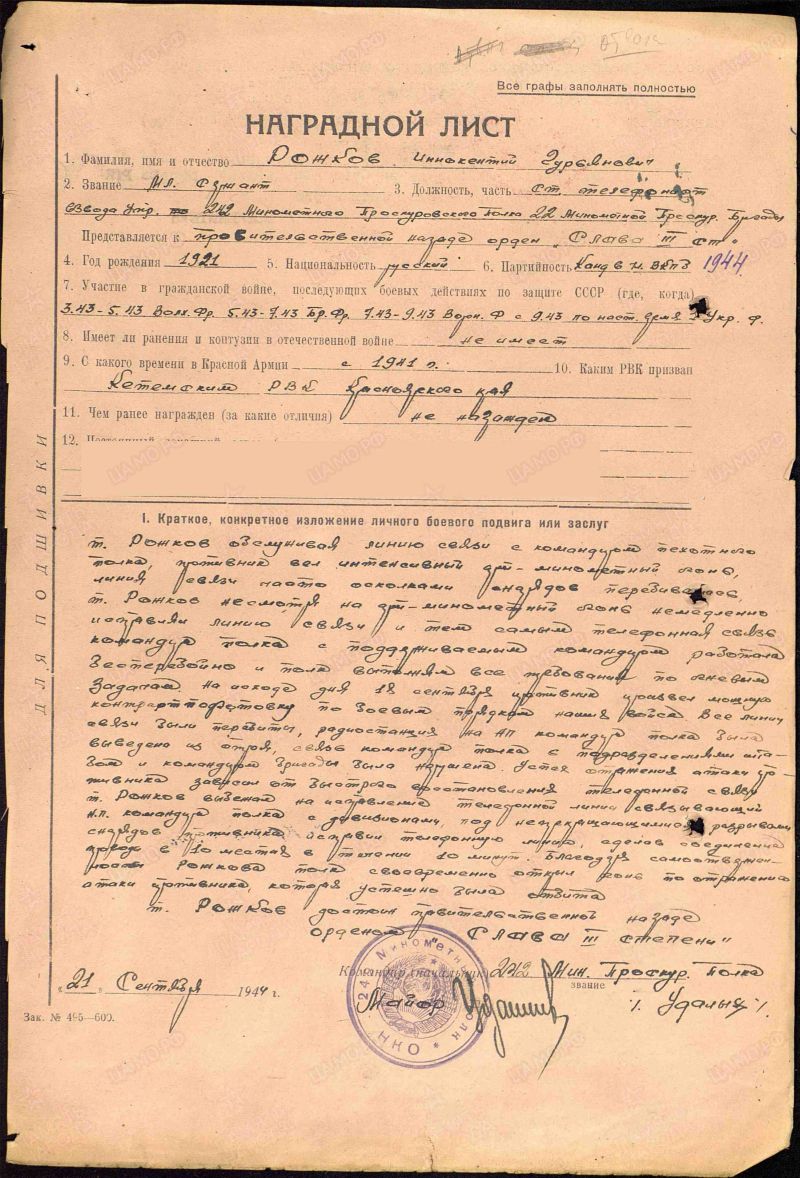 Все графы заполнять полностью
НАГРАДНОЙ ЛИСТ
1. Фамилия, имя и отчество Рожков Иннокентий Гурьянович
2. Звание Мл. сержант 3. Должность, часть ст. телефонист
взвода Упр. 242 Минометного Проскуровского Полка 22 Минометной Проскур. Бригады
Представляется к правительственной награде орден „Слава III ст"
4. Год рождения 1921 5. Национальность русский 6. Партийность Канд в чл. ВКПб 1944
7. Участие в гражданской войне, последующих боевых действиях по защите СССР (где, когда)
3.43-5.43 Волх. Фр. 5.43-7.43 Бр. Фр. 7.43-9.43 Ворон. Ф с 9.43 по наст. время 1 Укр. ф.
8. Имеет ли ранения и контузии в отечественной войне не имеет
9. С какого времени в Красной Армии с 1941 г. 10. Каким РВК призван
Кетемским РВК Красноярского края
11. Чем ранее награжден (за какие отличия) не награжден
12.
I. Краткое, конкретное изложение личного боевого подвига или заслуг
т. Рожков обслуживая линию связи с командиром пехотного
полка, противник вел интенсивный арт-минометный огонь,
линия связи часто осколками снарядов перебивалась,
т. Рожков несмотря на арт-минометный огонь немедленно
исправлял линию связи и тем самым телефонная связь
командир полка с поддерживаемым командиром работала
бесперебойно и полк выполнял все требования по огневым
задачам. На исходе дня 18 сентября противник произвел мощную
контрартподготовку по боевым порядкам наших войск. Все линии
связи были перебиты, радиостанция на НП командир полка была
выведена из строя, связь командир полка с подразделениями шта-
бом и командиром бригады была нарушена. Успех отражения атаки про-
тивника зависел от быстрого восстановления телефонной связи
т. Рожков выбежал на исправление телефонной линии связывающий
Н.П. командир полка с дивизионами, под непрекращающимися разрывами
снарядов противника исправил телефонную линию, сделав соединение
провода в 10 местах в течении 10 минут. Благодаря самоотвержен-
ности Рожкова полк своевременно открыл огонь по отражению
атаки противника, которая успешно была отбита
т. Рожков достоин правительственной награде
орденом „Слава III степени"
Командир (начальник) 242 Мин. Проскур. Полка
„21" Сентября 1944 г. звание
Майор / Удалых /
Зак. № 495—600.
ДЛЯ ПОДШИВКИ
242 Минометный полк * НКО
ЦАМО.РФ